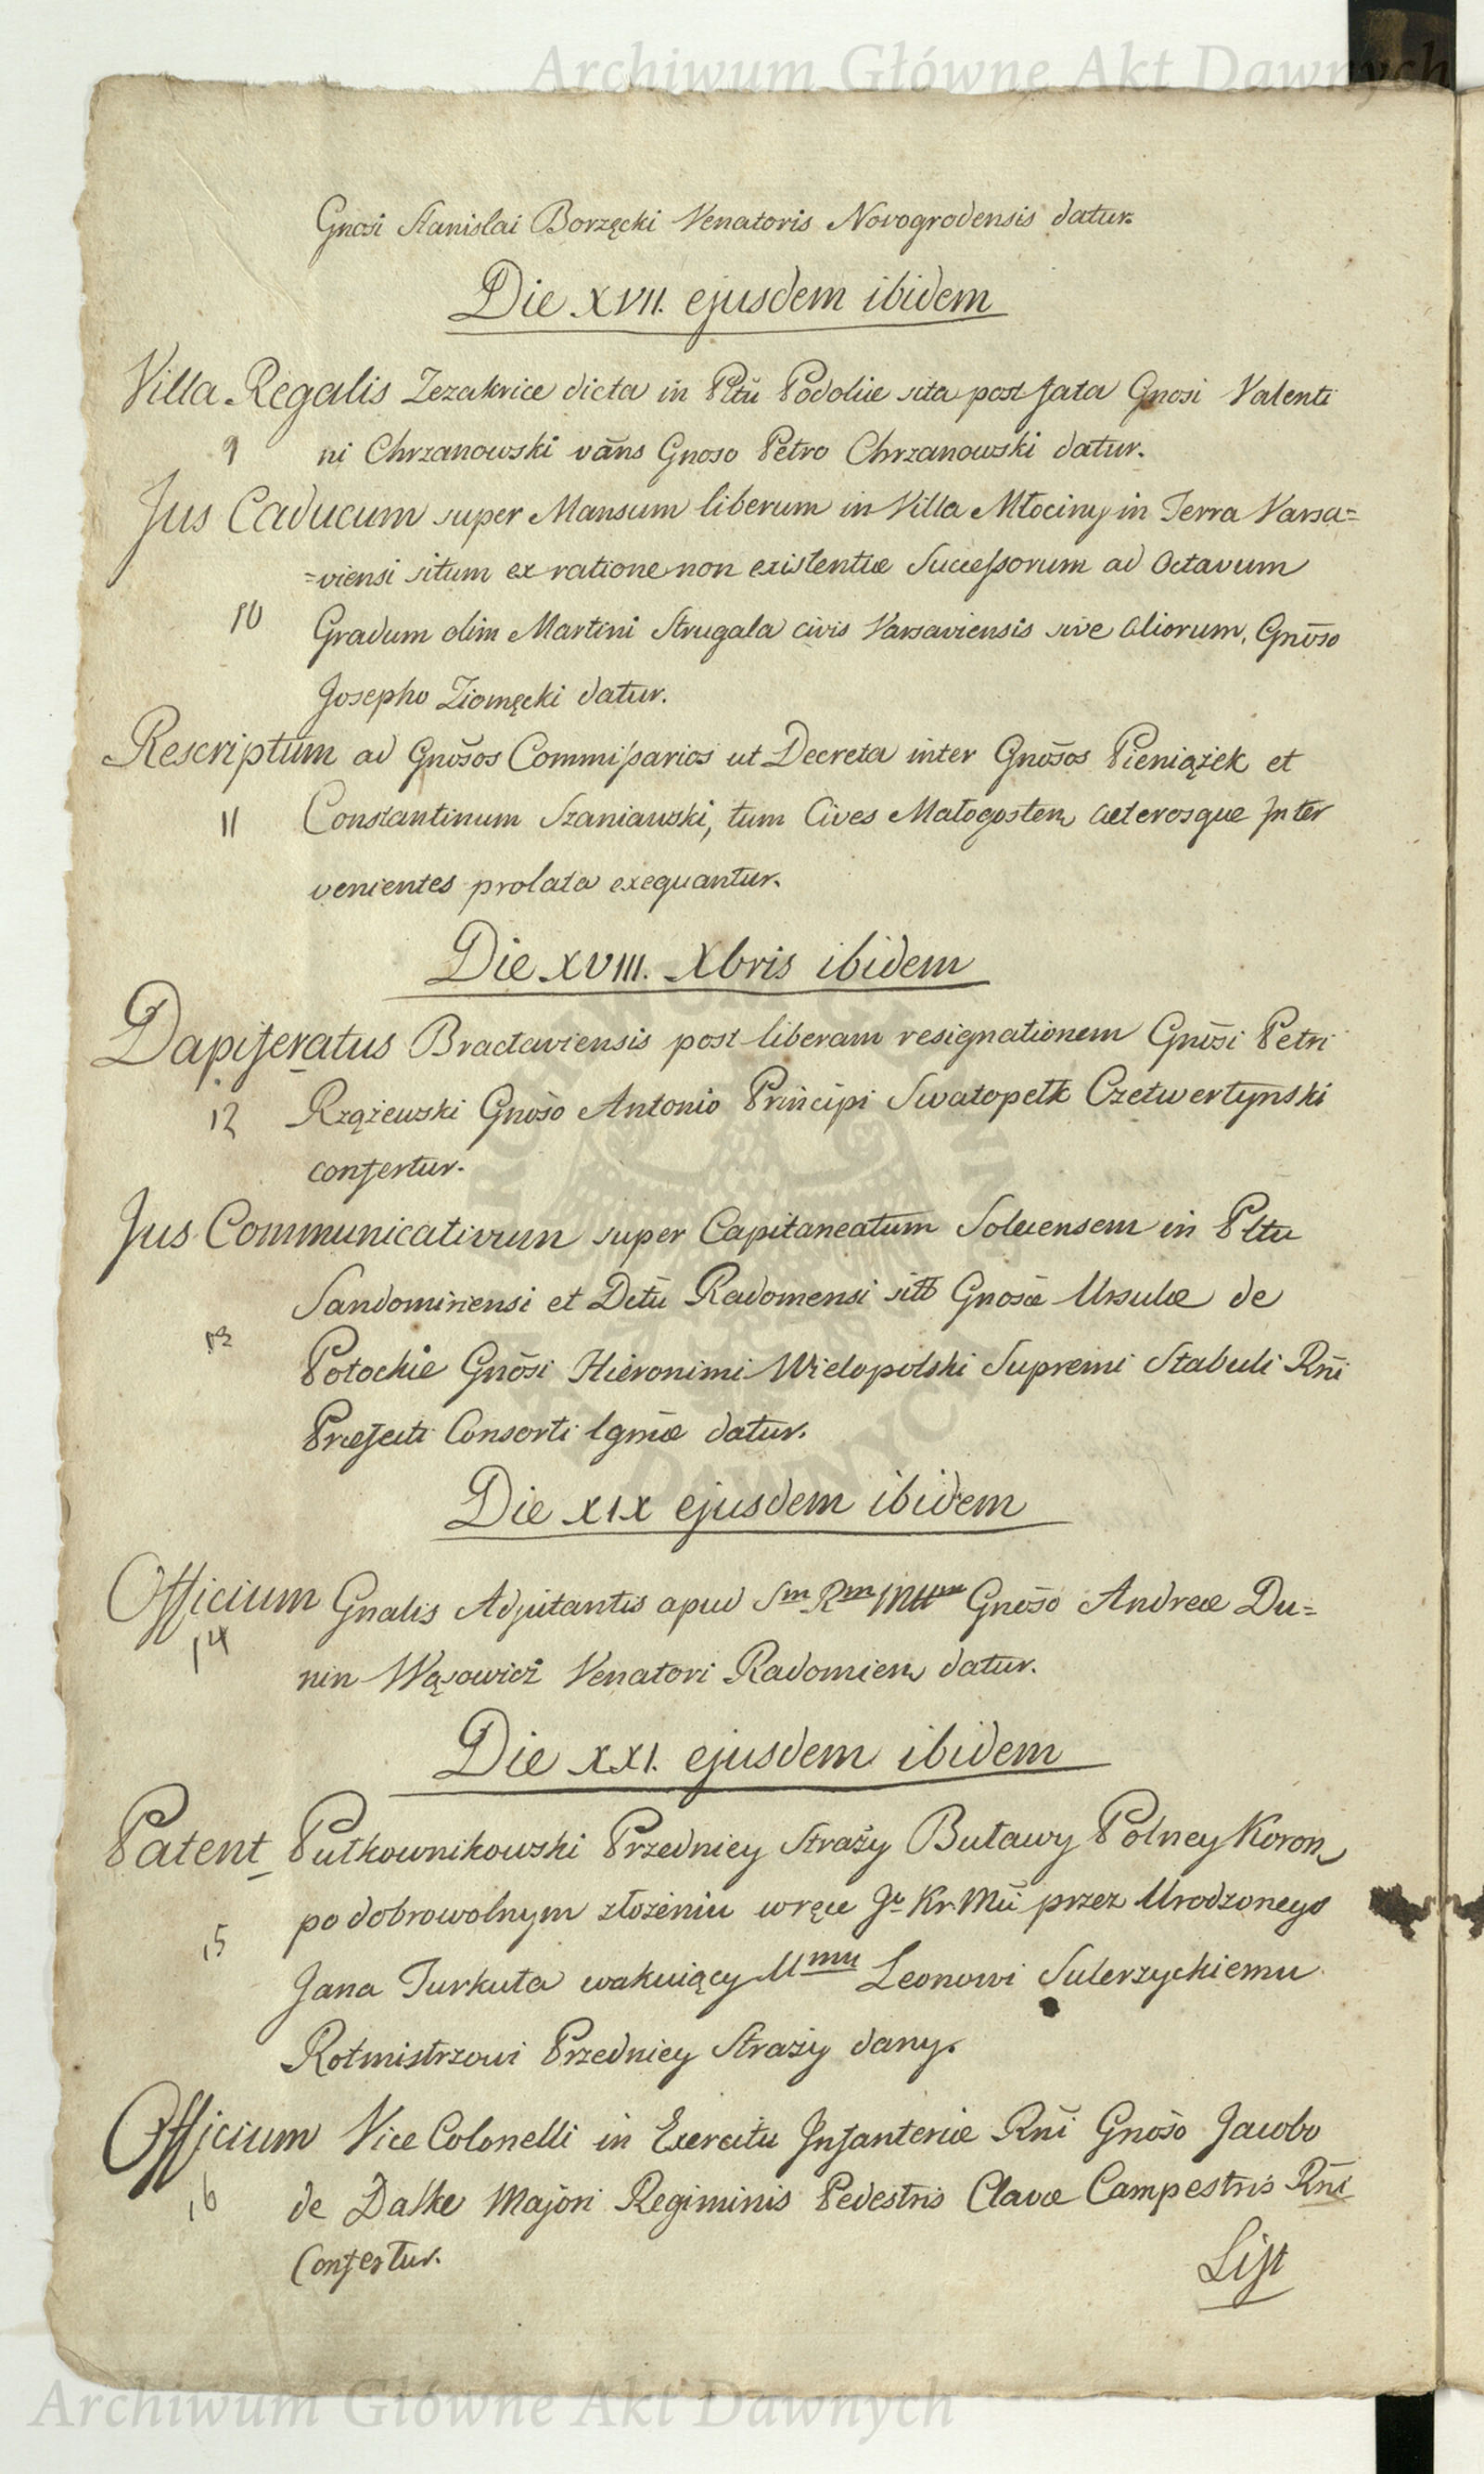 Archiwum Główne Akt Dawnych
Gnosi Stanislai Borzęcki Venatoris Novogrodensis datur.
Die XVII. ejusdem ibidem
Villa Regalis Zezakrice dicta in Pltŭ Podoliæ sita post fata Gnosi Valenti
9 ni Chrzanowski vãns Gnoso Petro Chrzanowski datur.
Jus Caducum super Mansum liberum in Villa Młociny in Terra Varsa=
=viensi situm ex ratione non existentiæ Successorum ad Octavum
10 Gradum olim Martini Strugala civis Varsaviensis sive aliorum, Gnõso
Josepho Ziomęcki datur.
Rescriptum ad Gnõsos Commissarios ut Decreta inter Gnõsos Pieniążek et
11 Constantinum Szaniawski, tum Cives Małogosten, cæterosque Inter
venientes prolata exequantur.
Die XVIII. Xbris ibidem
Dapiferatus Braclaviensis post liberam resignationem Gnõsi Petri
12 Rzążewski Gnõso Antonio Principi Swatopełk Czetwertynski
confertur.
Jus Communicativum super Capitaneatum Solecensem in Pltu
Sandomiriensi et Dttŭ Radomensi sitt Gnosæ Ursulæ de
13 Potockie Gnõsi Hieronimi Wielopolski Supremi Stabuli Rñi
Præfecti Consorti lgmæ datur.
Die XIX ejusdem ibidem
Officium Gnalis Adjutantis apud Sm Rm Mttm Gnõso Andreæ Du=
14 nin Wąsowicz Venatori Radomien, datur.
Die XXI. ejusdem ibidem
Patent Pułkownikowski Przedniey Straży Buławy Polney Koron,
po dobrowolnym złożeniu w ręce Ju Kr Mći przez Urodzonego
15 Jana Turkuła wakuiący Umu Leonowi Sulerzyckiemu
Rotmistrzowi Przedniey Straży dany.
Officium Vice Colonelli in Exercitu Infanteriæ Rñi Gnõso Jacobo
16 de Dalke Majori Regiminis Pedestris Clavæ Campestris Rñi
Confertur.
List
Archiwum Główne Akt Dawnych